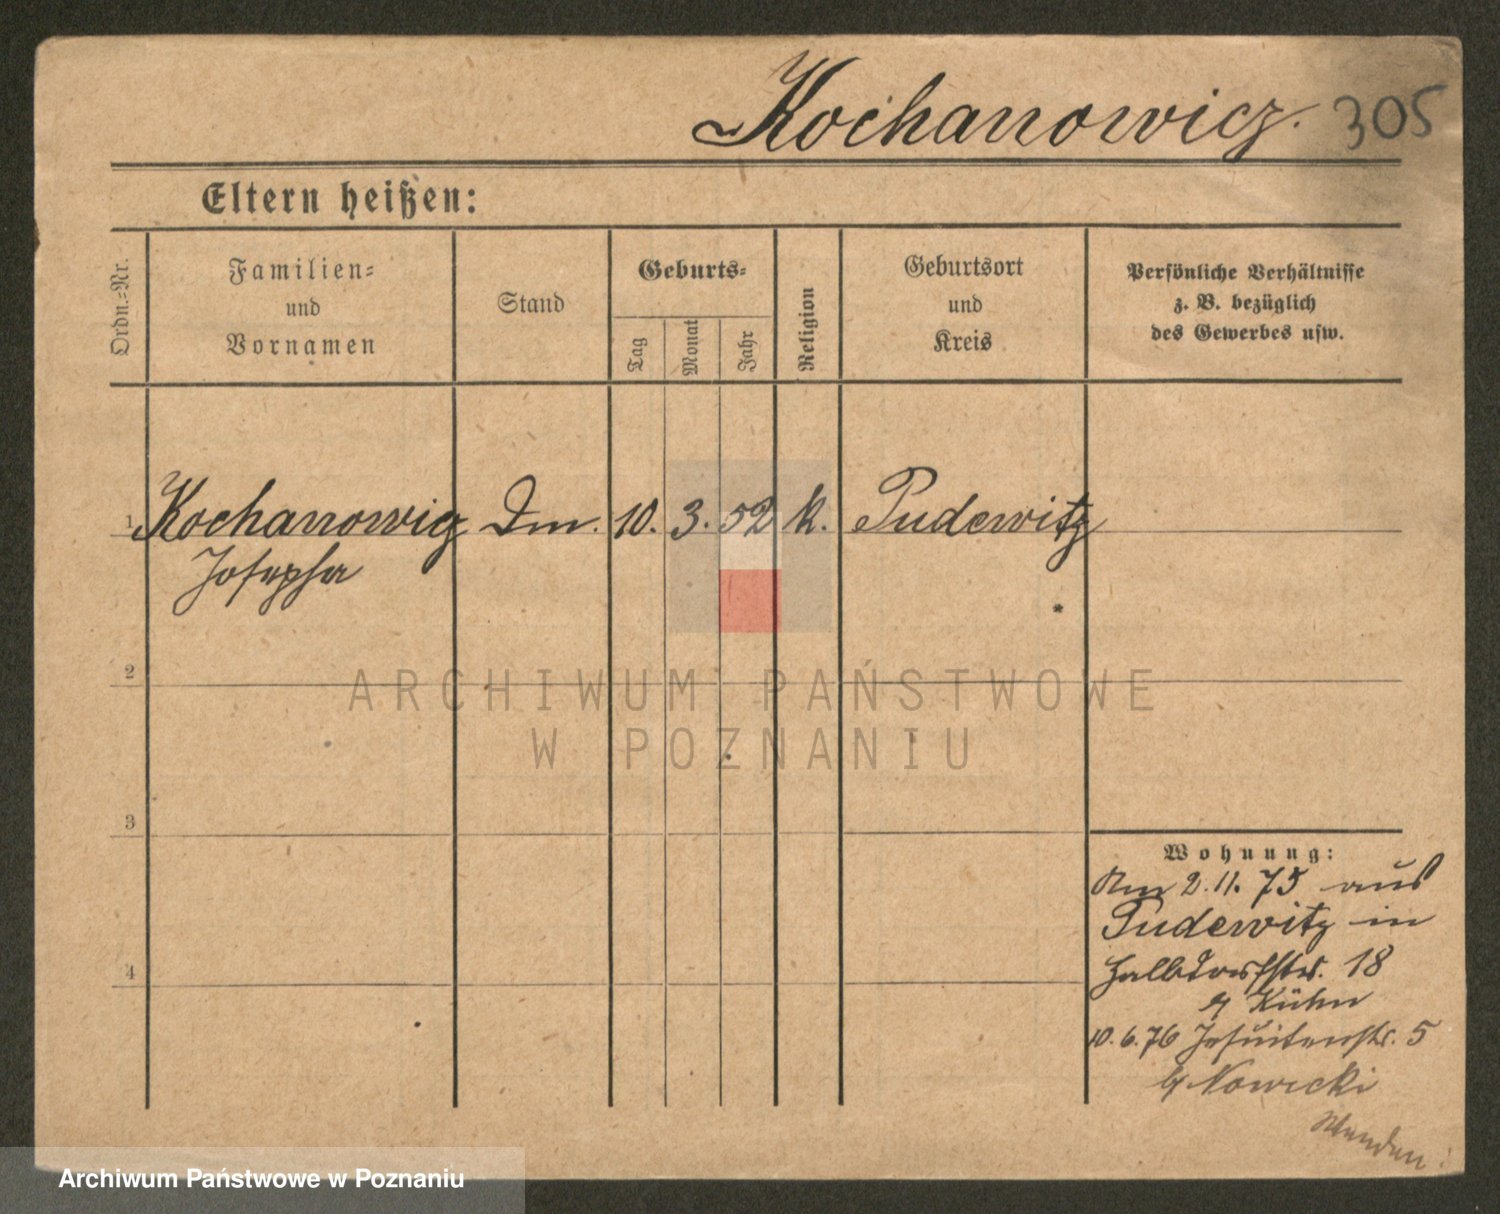 Kochanowicz. 305
Eltern heißen:
Ordn.-Nr.
Familien-
und
Vornamen
Stand
Geburts-
Tag
Monat
Jahr
Religion
Geburtsort
und
Kreis
Persönliche Verhältnisse
z. B. bezüglich
des Gewerbes usw.
1 Kochanowicz Dm. 10. 3. 52 k. Pudewitz
Josepha
2
3
4
Wohnung:
Am 2.11.75 aus
Pudewitz in
Halbdorfstr. 18
b/ Kühn
10.6.76 Jesuitenstr. 5
b/ Nowicki
Wenden!
ARCHIWUM PAŃSTWOWE
W POZNANIU
Archiwum Państwowe w Poznaniu